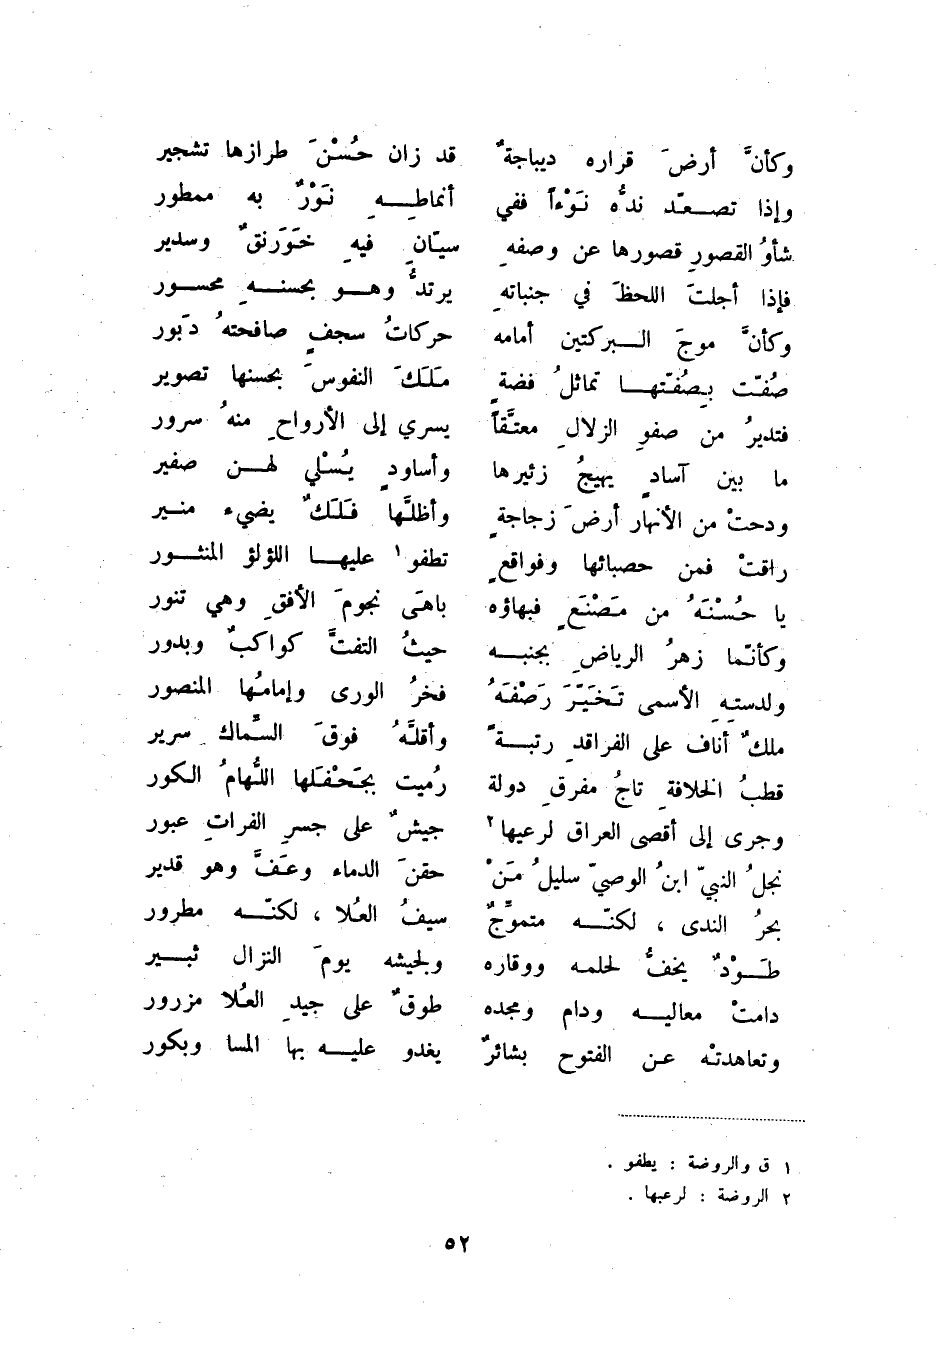 وكأنَّ أرضَ قراره ديباجةٌ قد زان حُسْنَ طرازها تشجير
وإذا تصعّد ندُّه نَوْءاً ففي أنماطِهِ نَوْرٌ به ممطور
شأوُ القصورِ قصورها عن وصفهِ سيّانِ فيهِ خَوَرنقٌ وسدير
فإذا أجلتَ اللحظَ في جنباتهِ يرتدُّ وهو بحسنهِ محسور
وكأنَّ موجَ البركتين أمامه حركاتُ سجفٍ صافحتهُ دَبور
صُفّت بِصُفّتها تماثلُ فضةٍ مَلَكَ النفوسَ بحسنها تصوير
فتديرُ من صفوِ الزلالِ معتَّقاً يسري إلى الأرواحِ منهُ سرور
ما بين آسادٍ يهيجُ زئيرها وأساودٍ يُسْلي لهن صفير
ودحتْ من الأنهار أرضَ زجاجةٍ وأظلَّها فَلَكٌ يضيء منير
راقتْ فمن حصبائها وفواقعٍ تطفو١ عليها اللؤلؤ المنثور
يا حُسْنَهُ من مَصْنَعٍ فبهاؤه باهَى نجومَ الأفقِ وهي تنور
وكأنّما زهرُ الرياضِ بجنبه حيثُ التفتَّ كواكبٌ وبدور
ولدستِهِ الأسمى تَخَيّرَ رَصْفَهُ فخرُ الورى وإمامُها المنصور
ملكٌ أناف على الفراقدِ رتبةً وأقلَّهُ فوقَ السِّماك سرير
قطبُ الخلافةِ تاجُ مفرقِ دولة رُميت بجَحْفلها اللُّهامُ الكور
وجرى إلى أقصى العراق لرعيها٢ جيشٌ على جسرِ الفراتِ عبور
نجلُ النبيّ ابنُ الوصيّ سليلُ مَنْ حقنَ الدماء وعَفَّ وهو قدير
بحرُ الندى ، لكنّه متموّجٌ سيفُ العُلا ، لكنّه مطرور
طَوْدٌ يخفُّ لحلمه ووقاره ولجيشه يومَ النزال ثبير
دامتْ معاليه ودام ومجده طوقٌ على جيدِ العُلا مزرور
وتعاهدتْه عن الفتوح بشائرٌ يغدو عليه بها المسا وبكور
١ ق والروضة : يطفو .
٢ الروضة : لرعبها .
٥٢